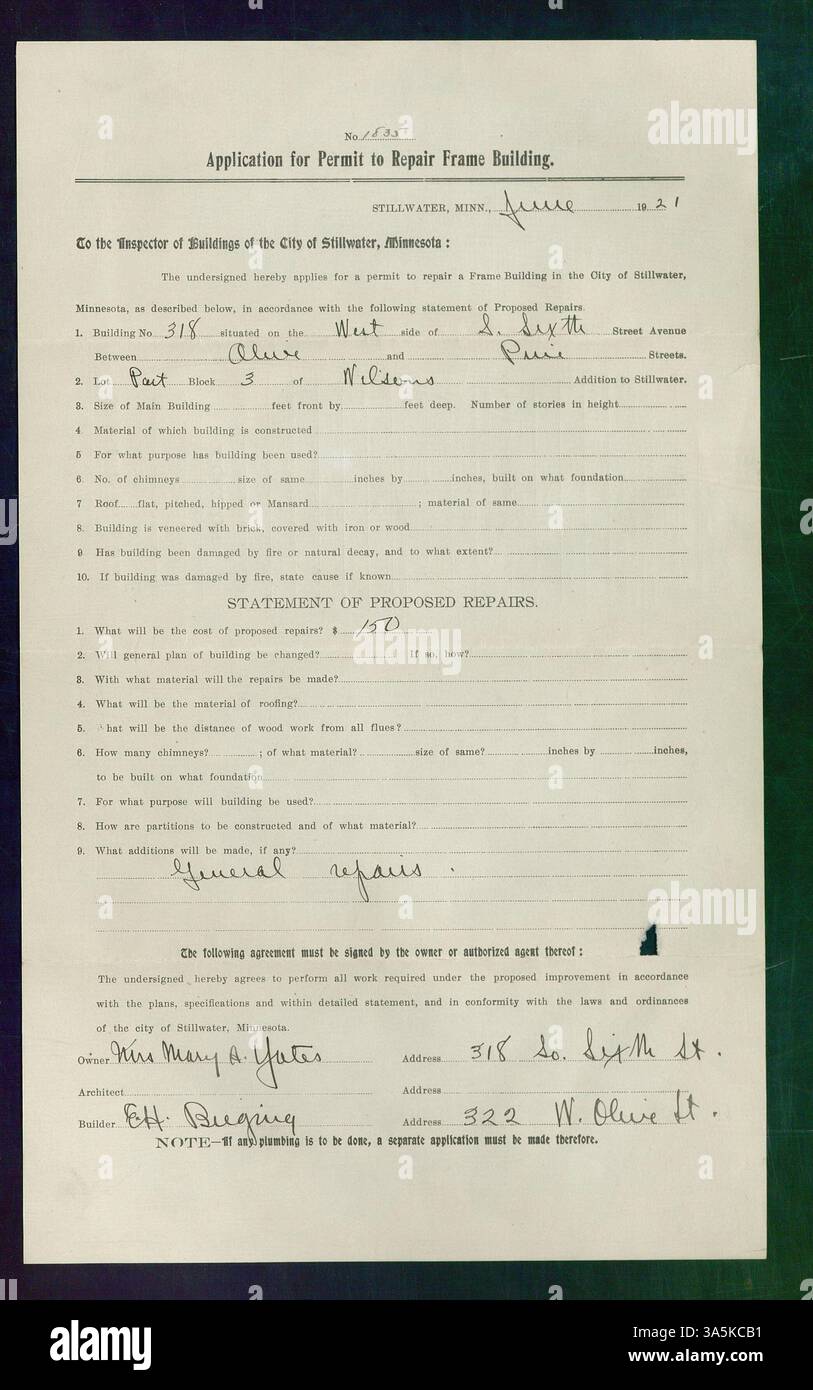 No. 1835
Application for Permit to Repair Frame Building.
STILLWATER, MINN., June 1921
To the Inspector of Buildings of the City of Stillwater, Minnesota :
The undersigned hereby applies for a permit to repair a Frame Building in the City of Stillwater,
Minnesota, as described below, in accordance with the following statement of Proposed Repairs.
1. Building No 318 situated on the West side of S. Sixth Street Avenue
Between Olive and Pine Streets.
2. Lot Part Block 3 of Wilsons Addition to Stillwater.
3. Size of Main Building feet front by feet deep. Number of stories in height
4 Material of which building is constructed
5 For what purpose has building been used?
6. No. of chimneys size of same inches by inches, built on what foundation
7 Roof flat, pitched, hipped or Mansard ; material of same
8. Building is veneered with brick, covered with iron or wood
9 Has building been damaged by fire or natural decay, and to what extent?
10. If building was damaged by fire, state cause if known
STATEMENT OF PROPOSED REPAIRS.
1. What will be the cost of proposed repairs? $ 150
2. Will general plan of building be changed? If so, how?
3. With what material will the repairs be made?
4. What will be the material of roofing?
5. hat will be the distance of wood work from all flues?
6. How many chimneys? ; of what material? size of same? inches by inches,
to be built on what foundation
7. For what purpose will building be used?
8. How are partitions to be constructed and of what material?
9. What additions will be made, if any?
General repairs.
The following agreement must be signed by the owner or authorized agent thereof :
The undersigned hereby agrees to perform all work required under the proposed improvement in accordance
with the plans, specifications and within detailed statement, and in conformity with the laws and ordinances
of the city of Stillwater, Minnesota.
Owner Mrs Mary A. Yates Address 318 So. Sixth St.
Architect Address
Builder E.H. Address 322 W. Olive St.
NOTE—If any plumbing is to be done, a separate application must be made therefore.
alamy
Image ID: 3A5KCB1
www.alamy.com